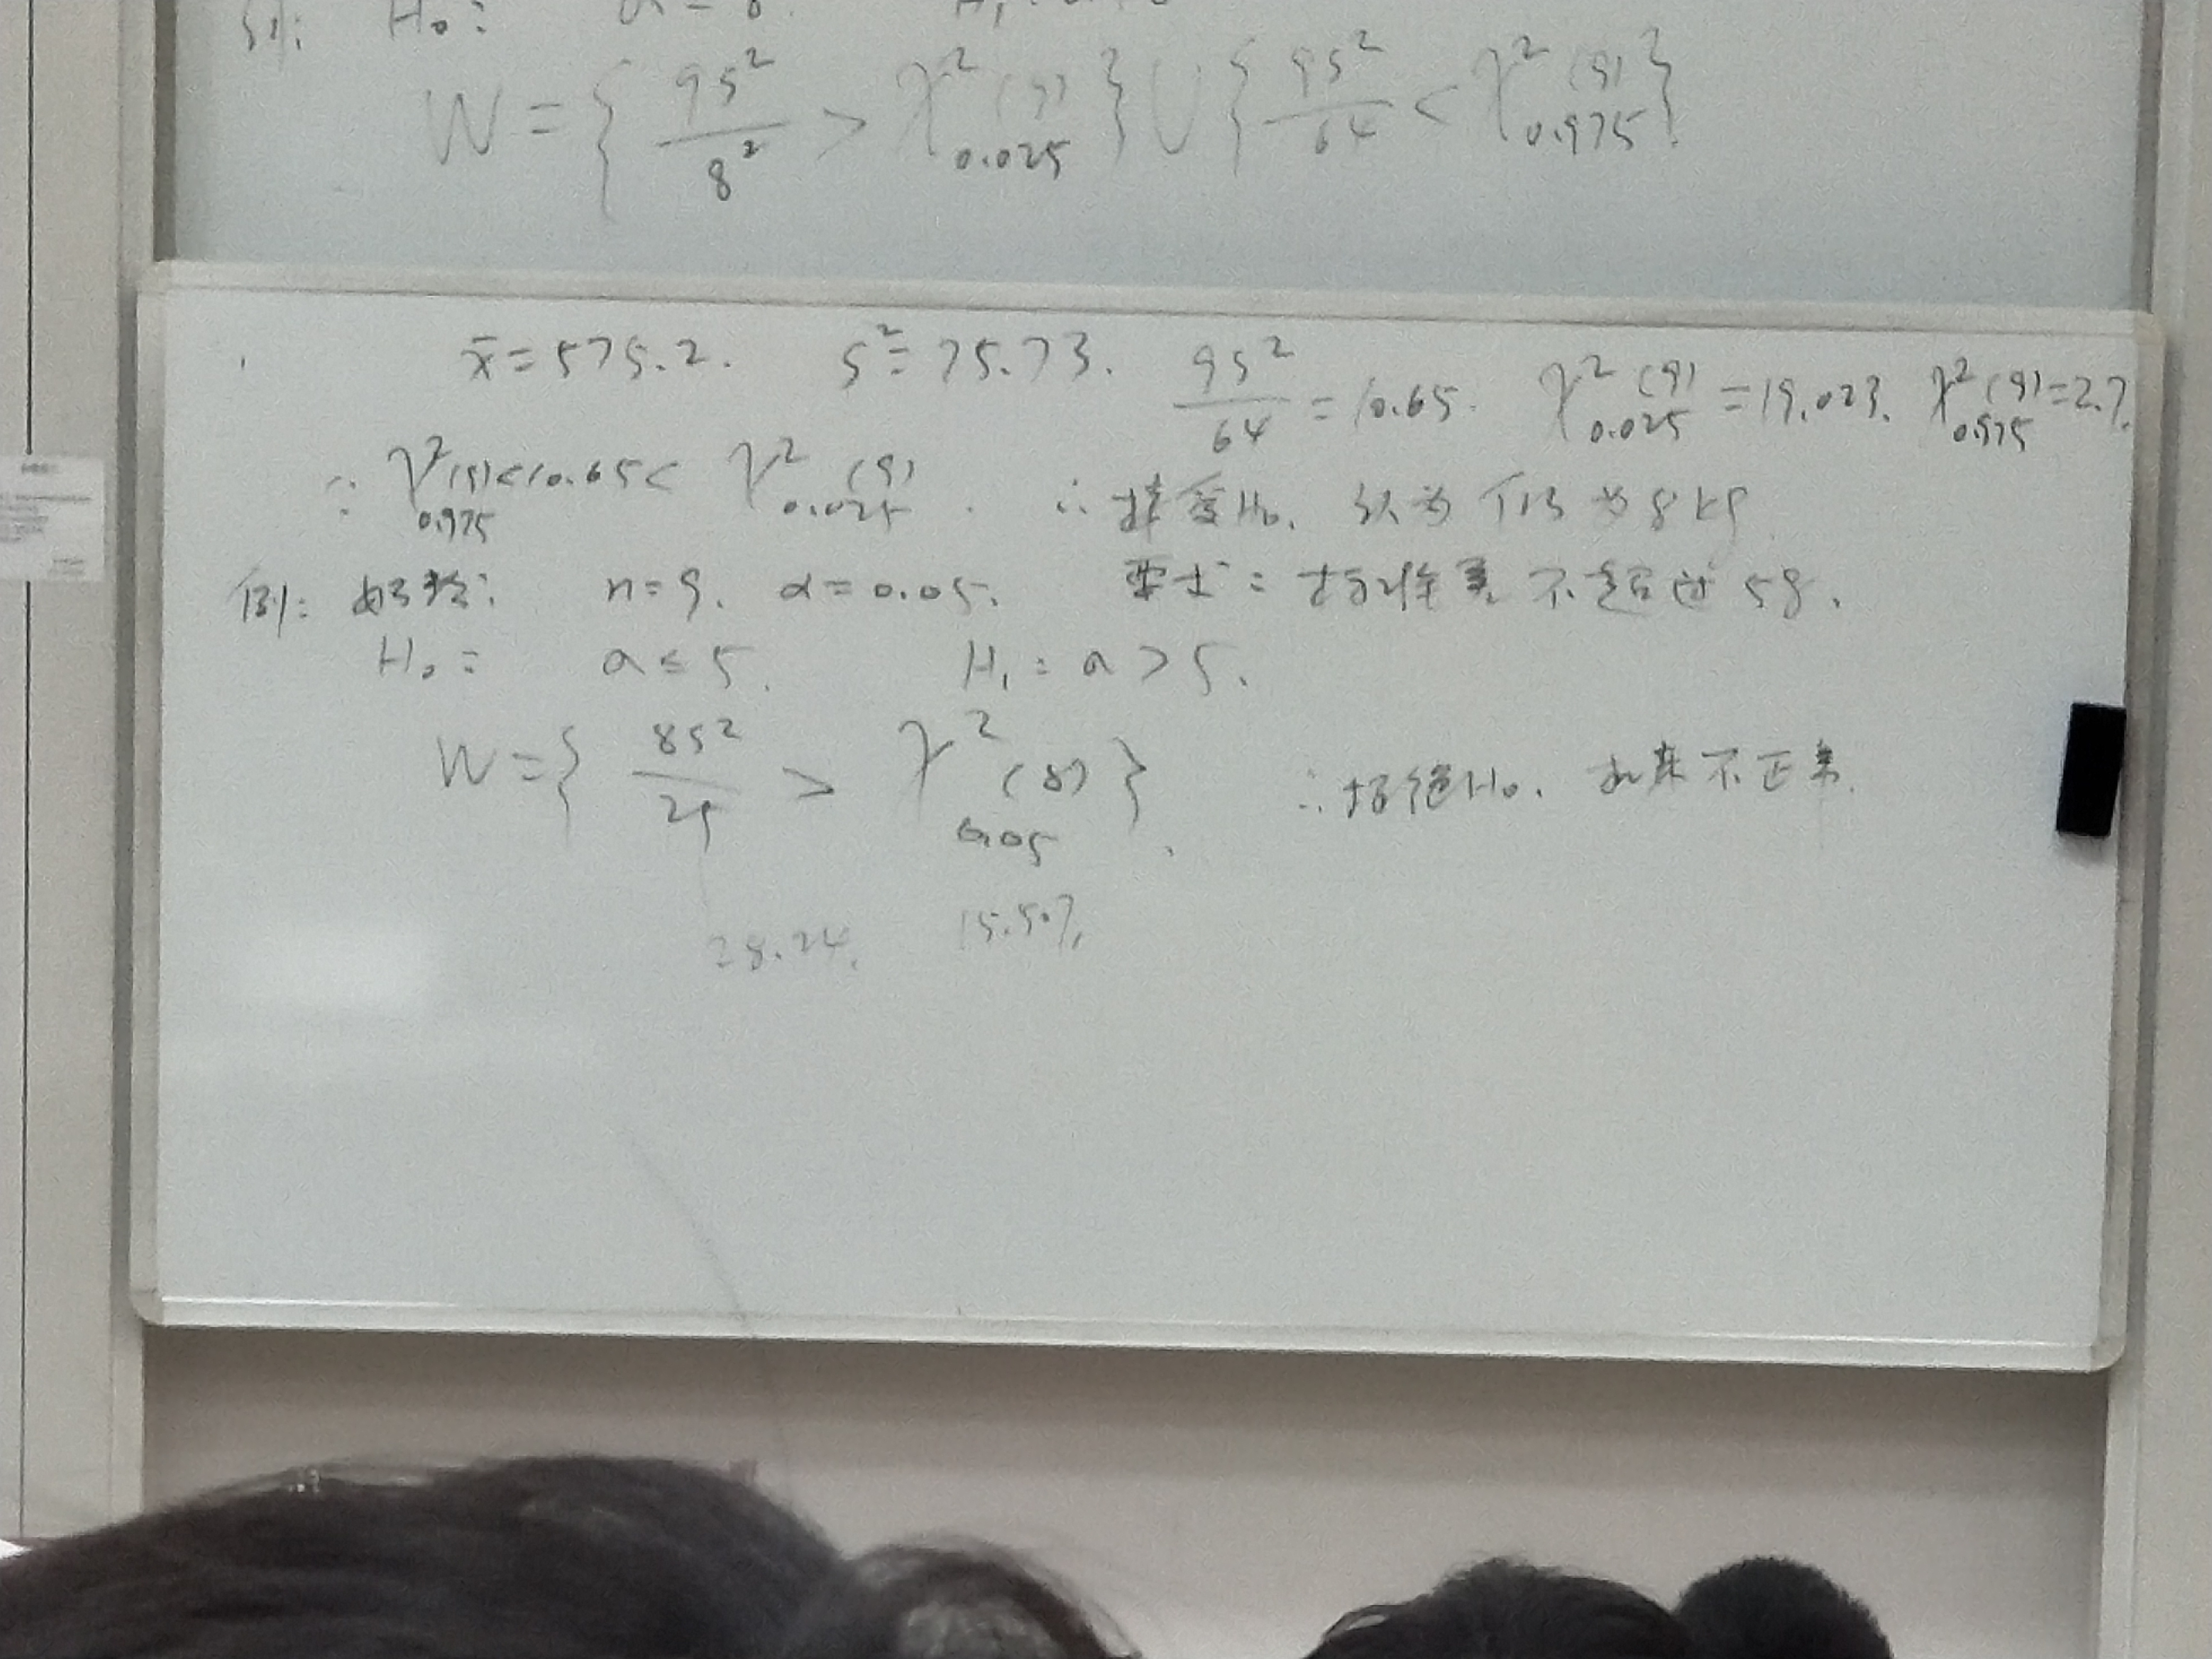 例: H₀: a = 8. H₁:
W = { 9S²/8² > χ²₀.₀₂₅(9) } ∪ { 9S²/64 < χ²₀.₉₇₅(9) }.
x̄ = 575.2. S² = 75.73. 9S²/64 = 10.65. χ²₀.₀₂₅(9) = 19.023. χ²₀.₉₇₅(9) = 2.7.
∵ χ²₀.₉₇₅(9) < 10.65 < χ²₀.₀₂₅(9). ∴ 接受H₀. 认为 仍为 8kg
例: n = 9. α = 0.05. 要求: 标准差不超过 5g.
H₀: a ≤ 5. H₁: a > 5.
W = { 8S²/25 > χ²₀.₀₅(8) }. ∴ 拒绝H₀. 机床不正常.
28.24. 15.507.